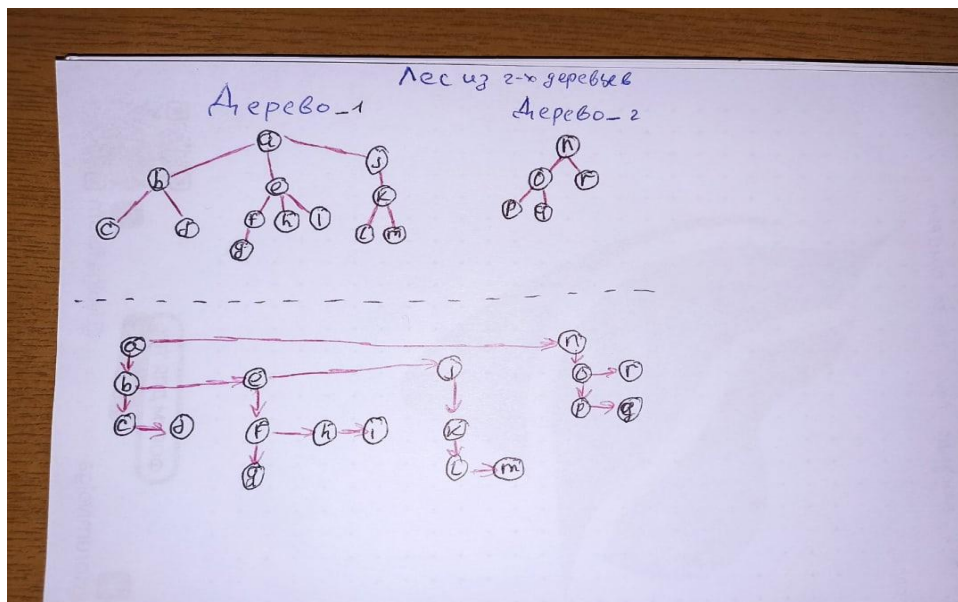 Лес из 2-х деревьев
Дерево_1 Дерево_2
a n
b e j o r
c d f h i k p q
g l m
a n
b e j o r
c d f h i k p q
g l m